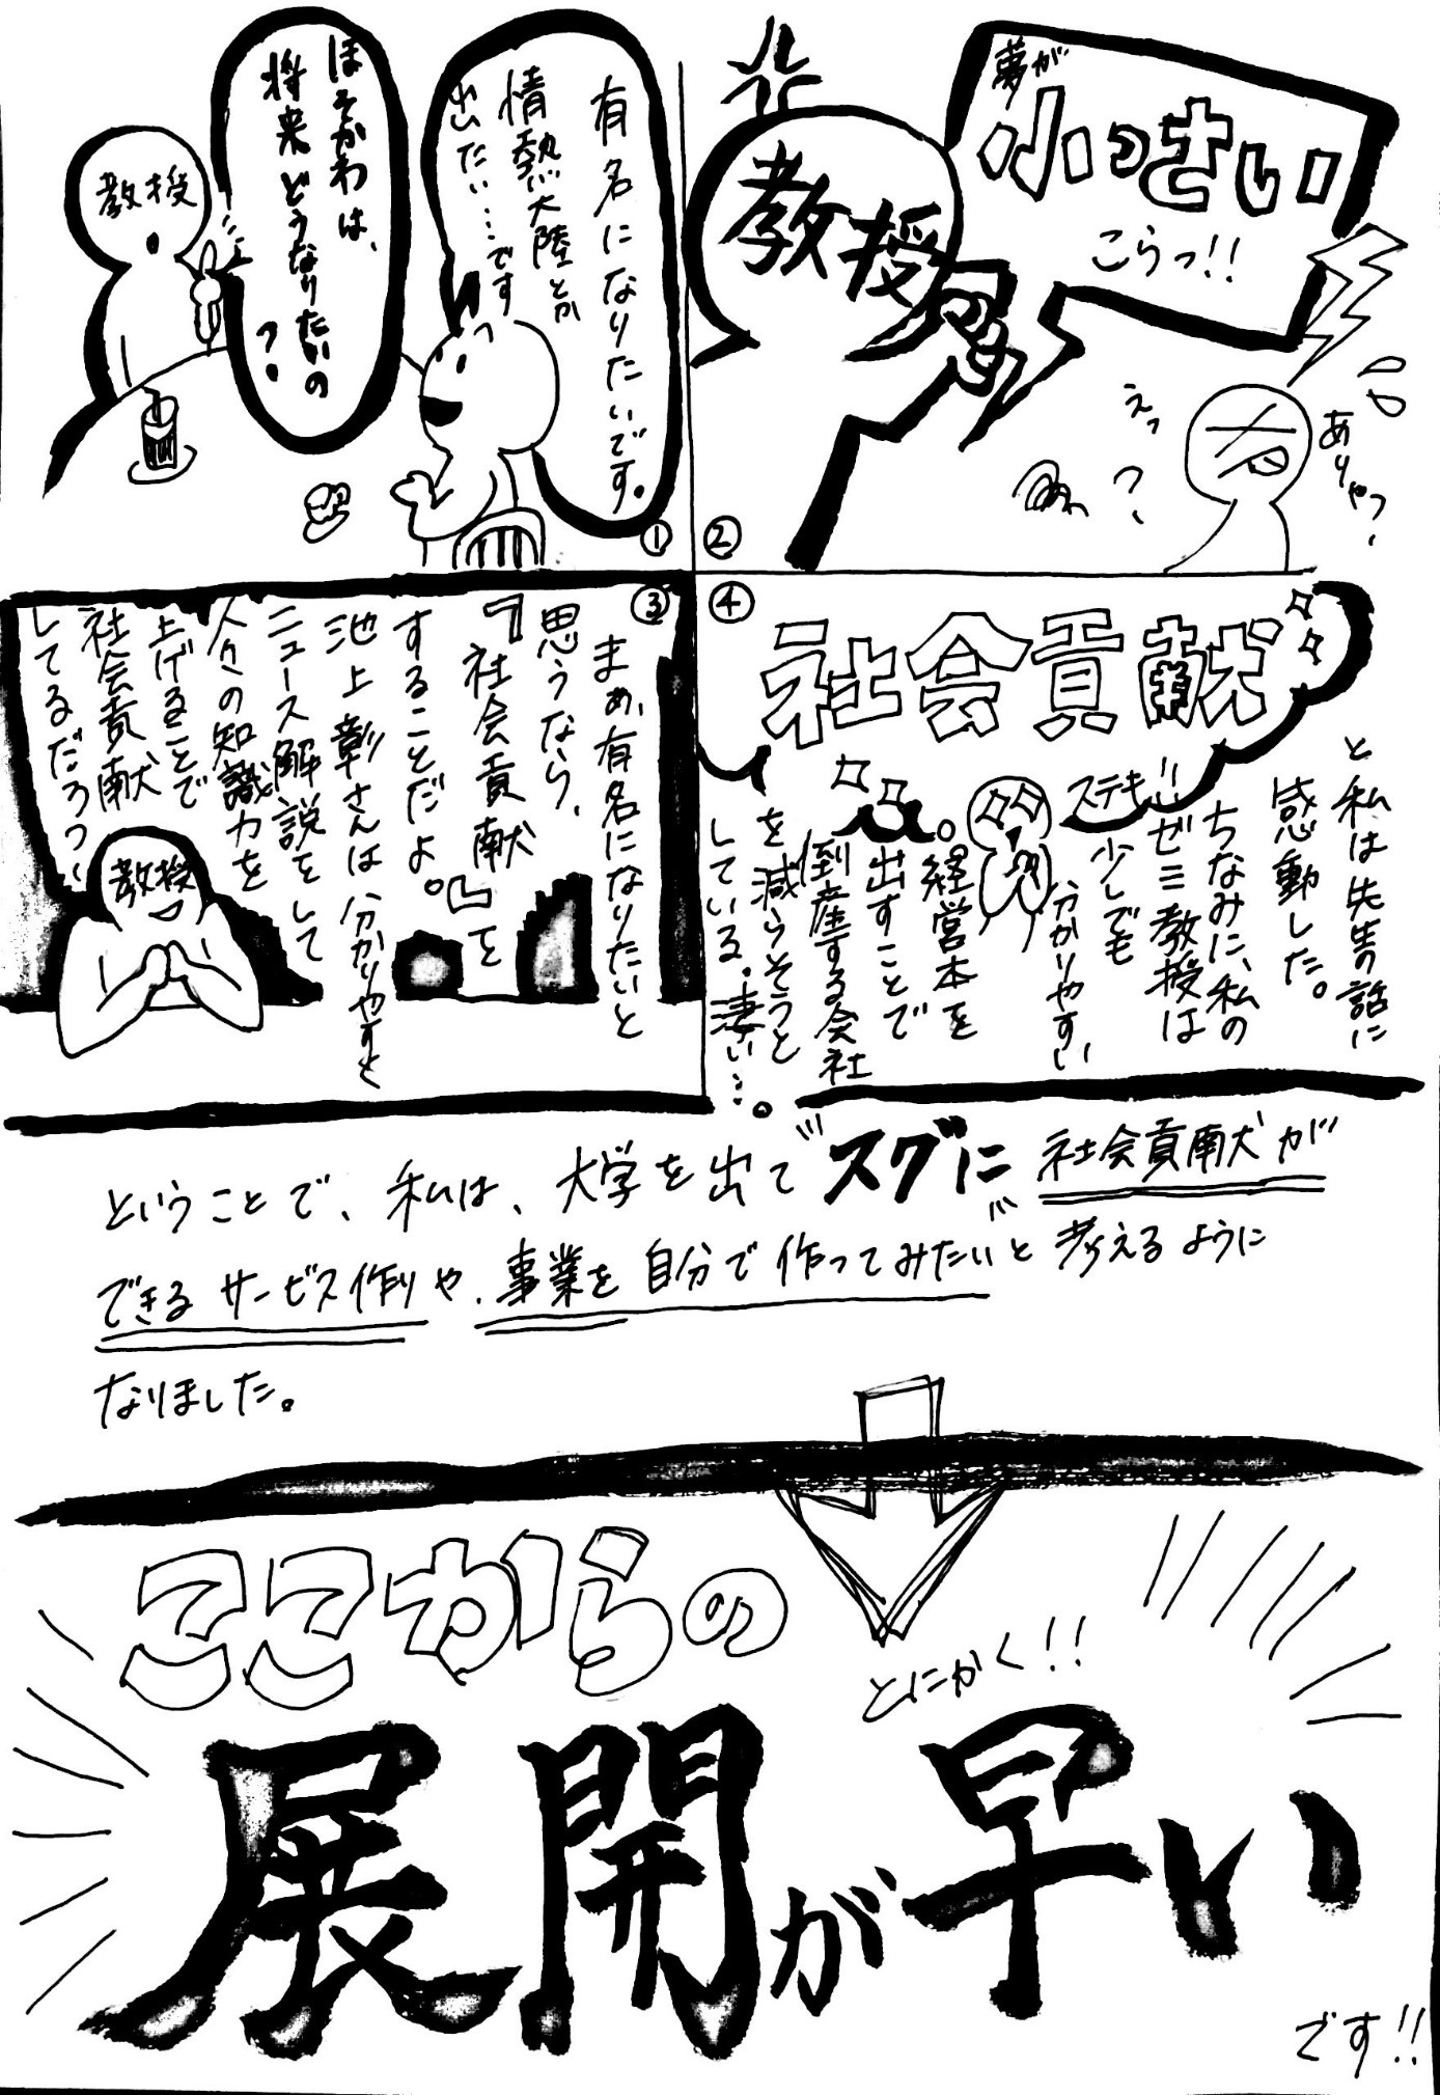 教授
ほそかわは、
将来どうなりたいの
?
有名になりたいです。
情熱大陸とか
出たい…です
①
②
夢が
小っさい
こらっ!!
教授
えっ
?
ありゃっ
③
まぁ、有名になりたいと
思うなら、
『社会貢献』を
することだよ。
池上彰さんは分かりやすく
ニュース解説をして
人々の知識力を
上げることで
社会貢献
してるだろっ
教授
④
社会貢献
ステキ!!
と私は先生の話に
感動した。
ちなみに、私の
ゼミ教授は
少しでも
分かりやすい
経営本を
出すことで
倒産する会社
を減らそうと
している。凄い…。
ということで、私は、大学を出て"スグに"社会貢献が
できるサービス作りや、事業を自分で作ってみたいと考えるように
なりました。
ここからの
とにかく!!
展開が早い
です!!